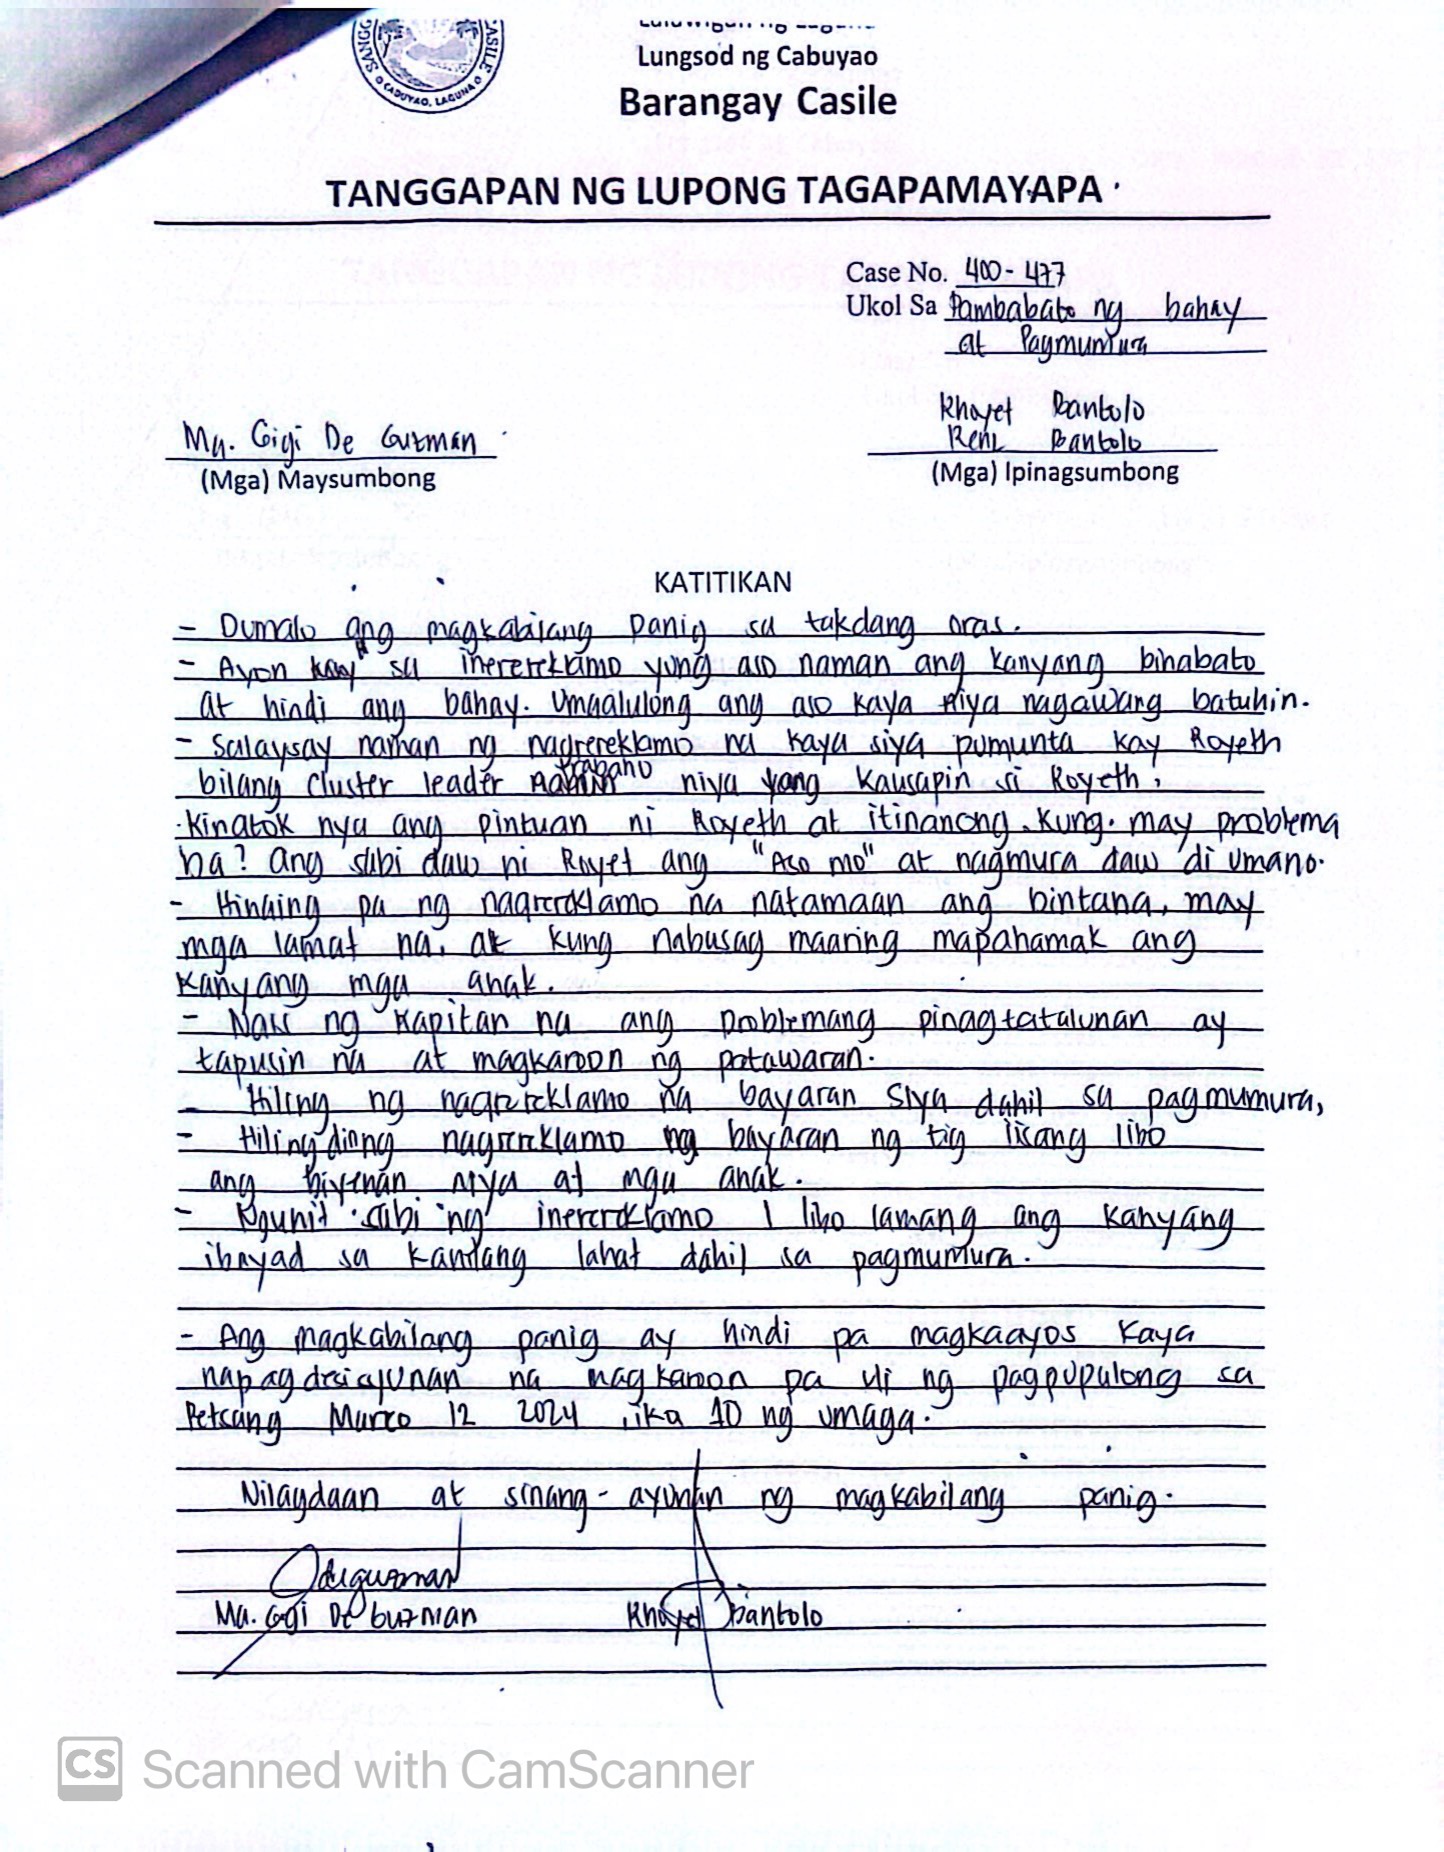 Lalawigan ng Laguna
Lungsod ng Cabuyao
Barangay Casile
CABUYAO, LAGUNA
TANGGAPAN NG LUPONG TAGAPAMAYAPA
Case No. 400-477
Ukol Sa Pambabato ng bahay
at Pagmumura
Khayet Bantolo
Rene Bantolo
(Mga) Ipinagsumbong
Ma. Gigi De Guzman
(Mga) Maysumbong
KATITIKAN
- Dumalo ang magkabilang panig sa takdang oras.
- Ayon sa inerereklamo yung aso naman ang kanyang binabato
at hindi ang bahay. Umaalulong ang aso kaya niya nagawang batuhin.
- Salaysay naman ng nagrereklamo na kaya siya pumunta kay Royeth
bilang cluster leader trabaho niya yang kausapin si Royeth,
kinatok nya ang pintuan ni Royeth at itinanong kung may problema
ba? ang sabi daw ni Royet ang "Aso mo" at nagmura daw di umano.
- Hinaing pa ng nagrereklamo na natamaan ang bintana, may
mga lamat na, at kung nabusag maaring mapahamak ang
kanyang mga anak.
- Nais ng kapitan na ang problemang pinagtatalunan ay
tapusin na at magkaroon ng patawaran.
- Hiling ng nagrereklamo na bayaran siya dahil sa pagmumura,
- Hiling ding nagrereklamo ng bayaran ng tig lisang libo
ang biyenan niya at mga anak.
- Ngunit sabi ng inerereklamo 1 libo lamang ang kanyang
ibayad sa kanilang lahat dahil sa pagmumura.
- Ang magkabilang panig ay hindi pa magkaayos kaya
napagdesisyunan na magkaroon pa uli ng pagpupulong sa
Petsang Marso 12 2024, ika 10 ng umaga.
Nilagdaan at sinang-ayunan ng magkabilang panig.
deguzman
Ma. Gigi De Guzman Khayet Bantolo
CS Scanned with CamScanner